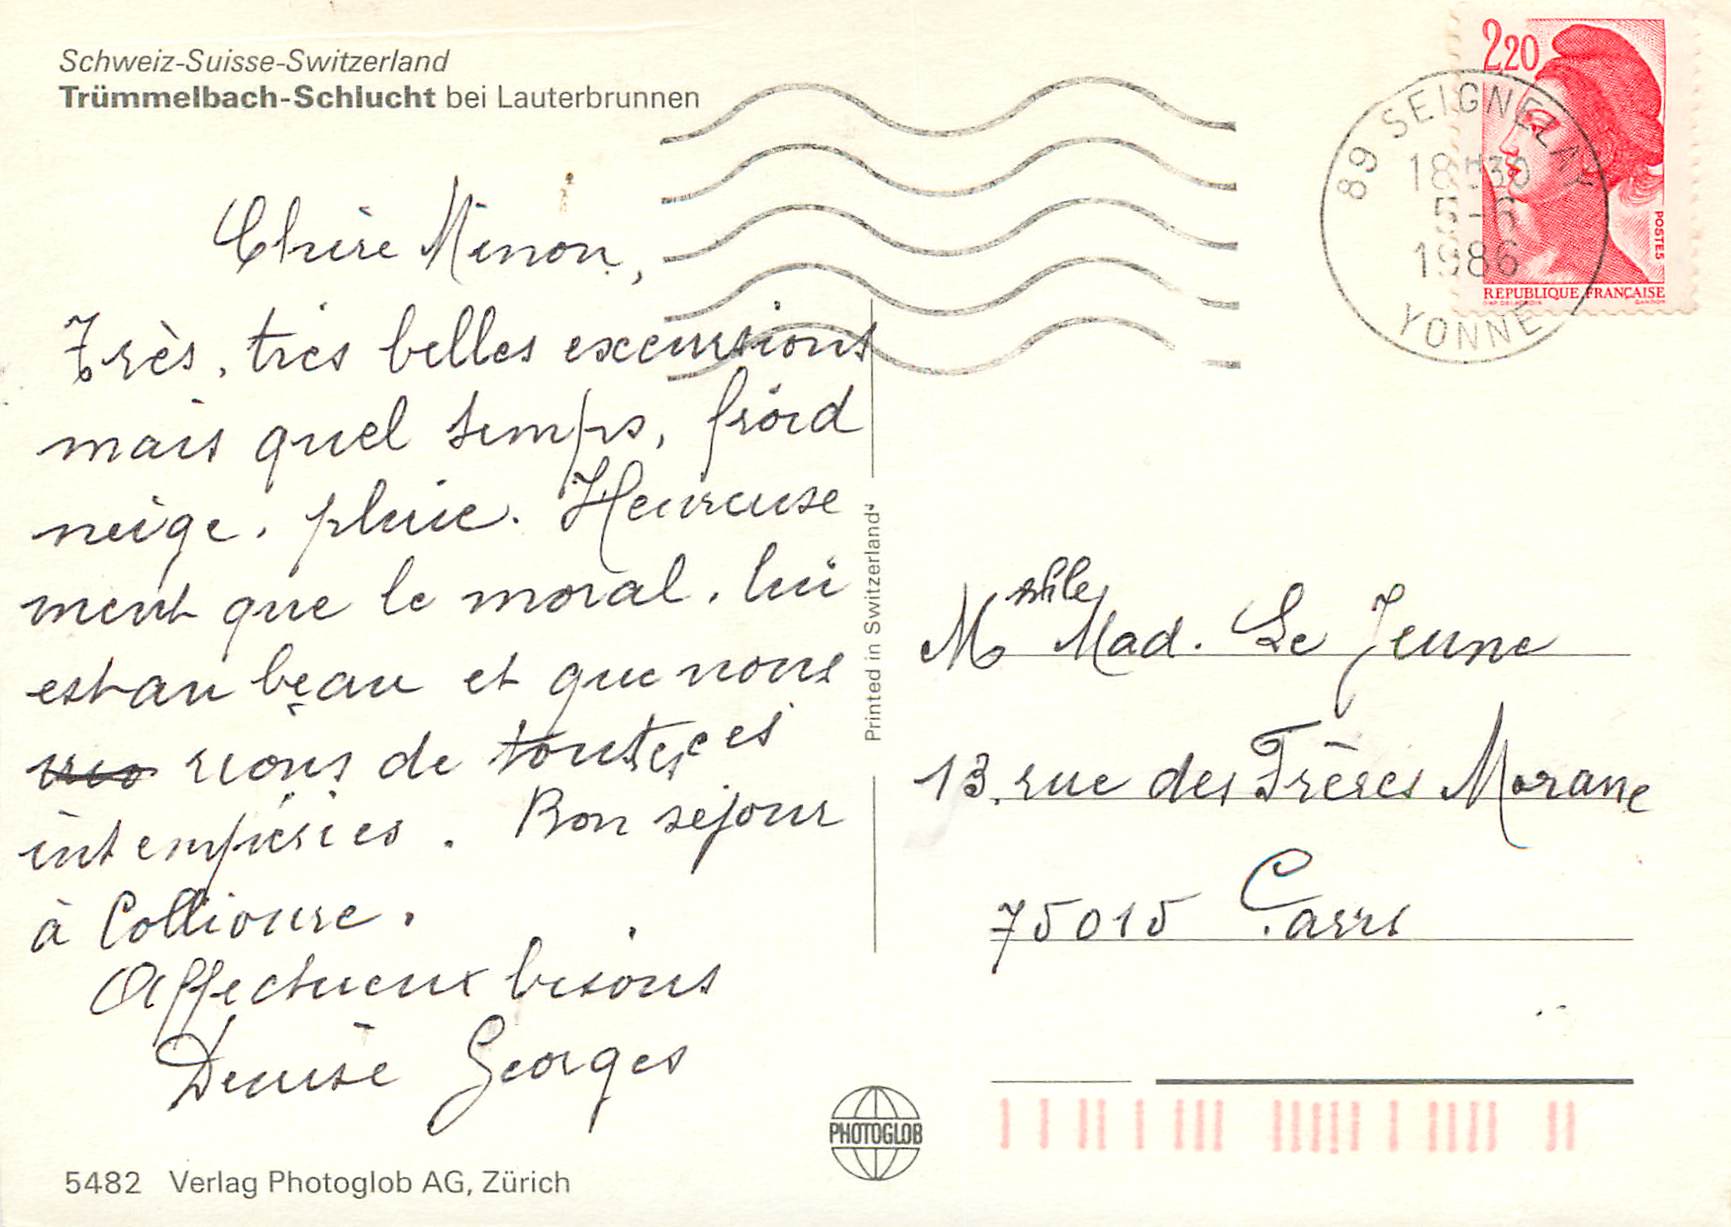 Schweiz-Suisse-Switzerland
Trümmelbach-Schlucht bei Lauterbrunnen
Chère Minon,
Très, très belles excursions
mais quel temps, froid
neige, pluie. Heureuse
ment que le moral, lui
est au beau et que nous
rions de toutes ces
intempéries. Bon séjour
à Collioure.
Affectueux bisous
Denise Georges
5482 Verlag Photoglob AG, Zürich
Printed in Switzerland
PHOTOGLOB
2,20
POSTES
REPUBLIQUE FRANÇAISE
89 SEIGNELAY
18H30
5-6
1986
YONNE
Mad. Le Jeune
13, rue des Frères Morane
75015 Paris